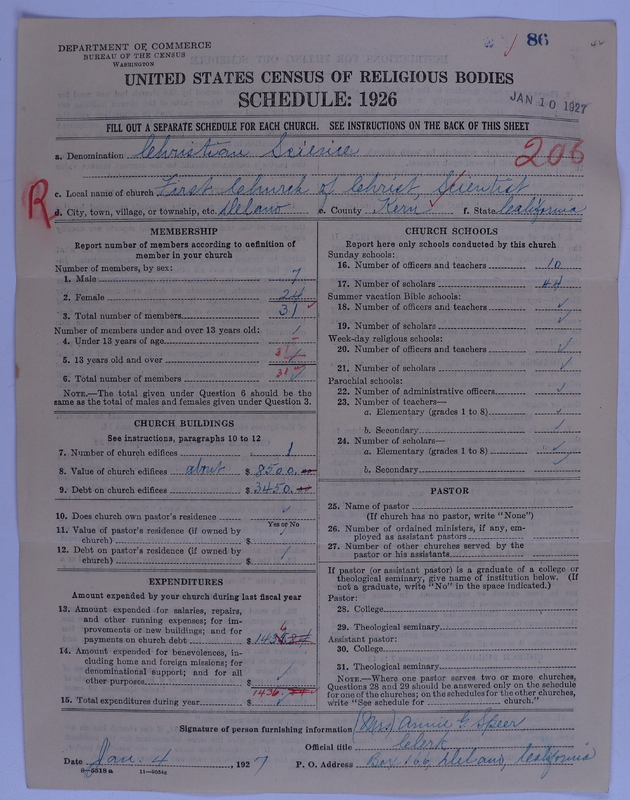 86
DEPARTMENT OF COMMERCE
BUREAU OF THE CENSUS
WASHINGTON
UNITED STATES CENSUS OF RELIGIOUS BODIES
SCHEDULE: 1926
JAN 10 1927
FILL OUT A SEPARATE SCHEDULE FOR EACH CHURCH. SEE INSTRUCTIONS ON THE BACK OF THIS SHEET
a. Denomination Christian Science
206
R
c. Local name of church First Church of Christ, Scientist
d. City, town, village, or township, etc. Delano e. County Kern f. State California
MEMBERSHIP
Report number of members according to definition of
member in your church
Number of members, by sex:
1. Male 7
2. Female 24
3. Total number of members 31
Number of members under and over 13 years old:
4. Under 13 years of age
5. 13 years old and over 31
6. Total number of members 31
NOTE.—The total given under Question 6 should be the
same as the total of males and females given under Question 3.
CHURCH BUILDINGS
See instructions, paragraphs 10 to 12
7. Number of church edifices 1
8. Value of church edifices about $ 8500.00
9. Debt on church edifices $ 3450.00
10. Does church own pastor's residence
Yes or No
11. Value of pastor's residence (if owned by
church) $
12. Debt on pastor's residence (if owned by
church) $
EXPENDITURES
Amount expended by your church during last fiscal year
13. Amount expended for salaries, repairs,
and other running expenses; for im-
provements or new buildings; and for
payments on church debt $
14. Amount expended for benevolences, in-
cluding home and foreign missions; for
denominational support; and for all
other purposes $
15. Total expenditures during year $ 1436.
CHURCH SCHOOLS
Report here only schools conducted by this church
Sunday schools:
16. Number of officers and teachers 10
17. Number of scholars 44
Summer vacation Bible schools:
18. Number of officers and teachers
19. Number of scholars
Week-day religious schools:
20. Number of officers and teachers
21. Number of scholars
Parochial schools:
22. Number of administrative officers
23. Number of teachers—
a. Elementary (grades 1 to 8)
b. Secondary
24. Number of scholars—
a. Elementary (grades 1 to 8)
b. Secondary
PASTOR
25. Name of pastor
(If church has no pastor, write "None")
26. Number of ordained ministers, if any, em-
ployed as assistant pastors
27. Number of other churches served by the
pastor or his assistants
If pastor (or assistant pastor) is a graduate of a college or
theological seminary, give name of institution below. (If
not a graduate, write "No" in the space indicated.)
Pastor:
28. College
29. Theological seminary
Assistant pastor:
30. College
31. Theological seminary
NOTE.—Where one pastor serves two or more churches,
Questions 28 and 29 should be answered only on the schedule
for one of the churches; on the schedules for the other churches,
write "See schedule for church."
Signature of person furnishing information (Mrs) Annie G. Speer
Official title Clerk
Date Jan. 4, 1927 P. O. Address Box 166, Delano, California
8-5518a 11-9054a